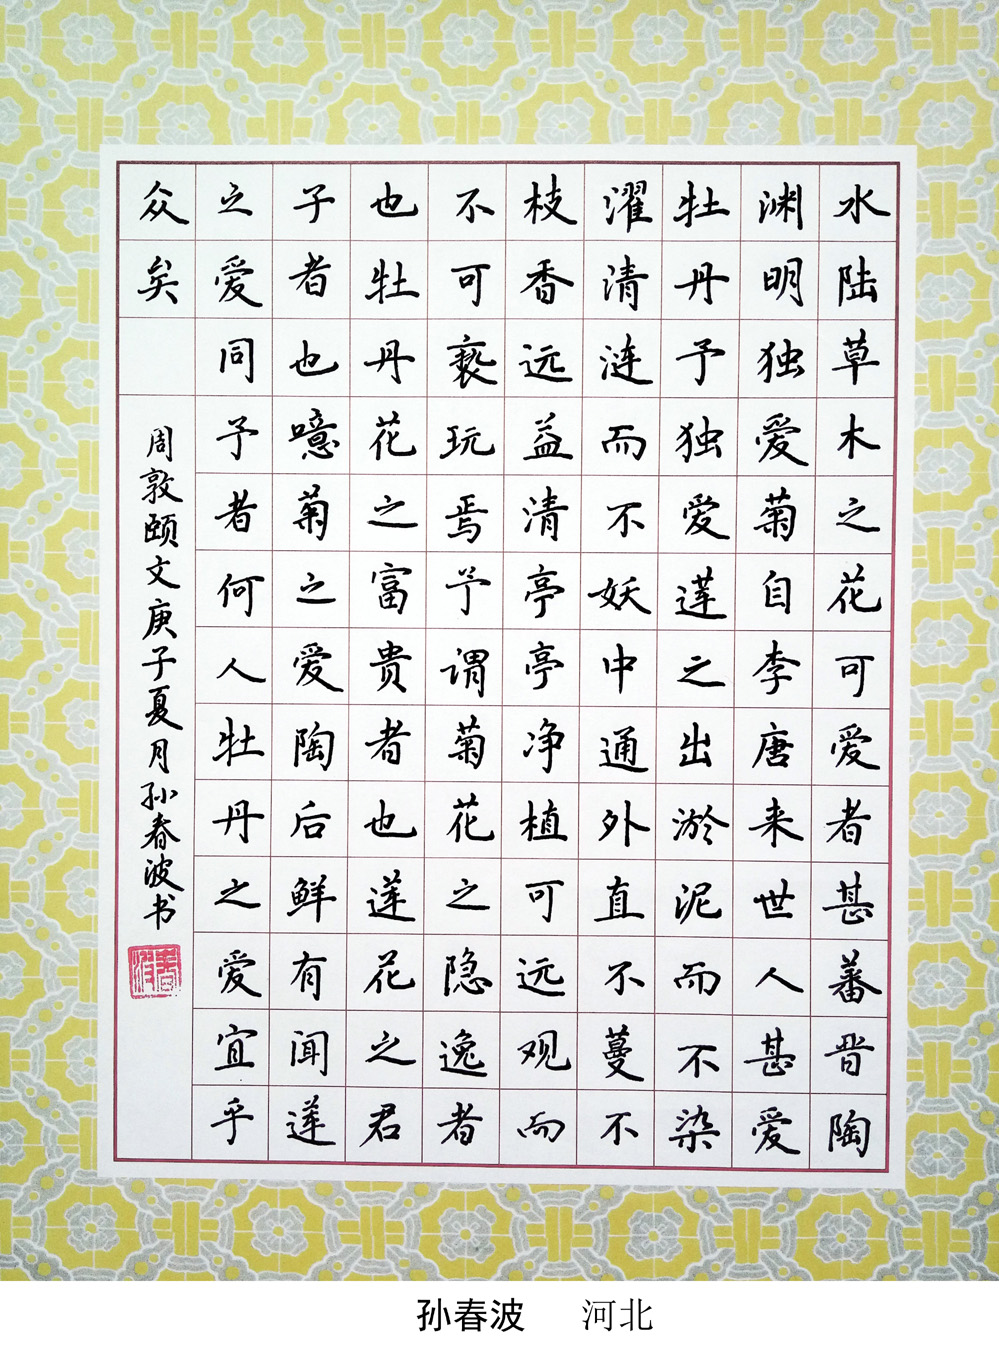 水陆草木之花可爱者甚蕃晋陶
渊明独爱菊自李唐来世人甚爱
牡丹予独爱莲之出淤泥而不染
濯清涟而不妖中通外直不蔓不
枝香远益清亭亭净植可远观而
不可亵玩焉予谓菊花之隐逸者
也牡丹花之富贵者也莲花之君
子者也噫菊之爱陶后鲜有闻莲
之爱同予者何人牡丹之爱宜乎
众矣
周敦颐文庚子夏月孙春波书
春波
孙春波 河北